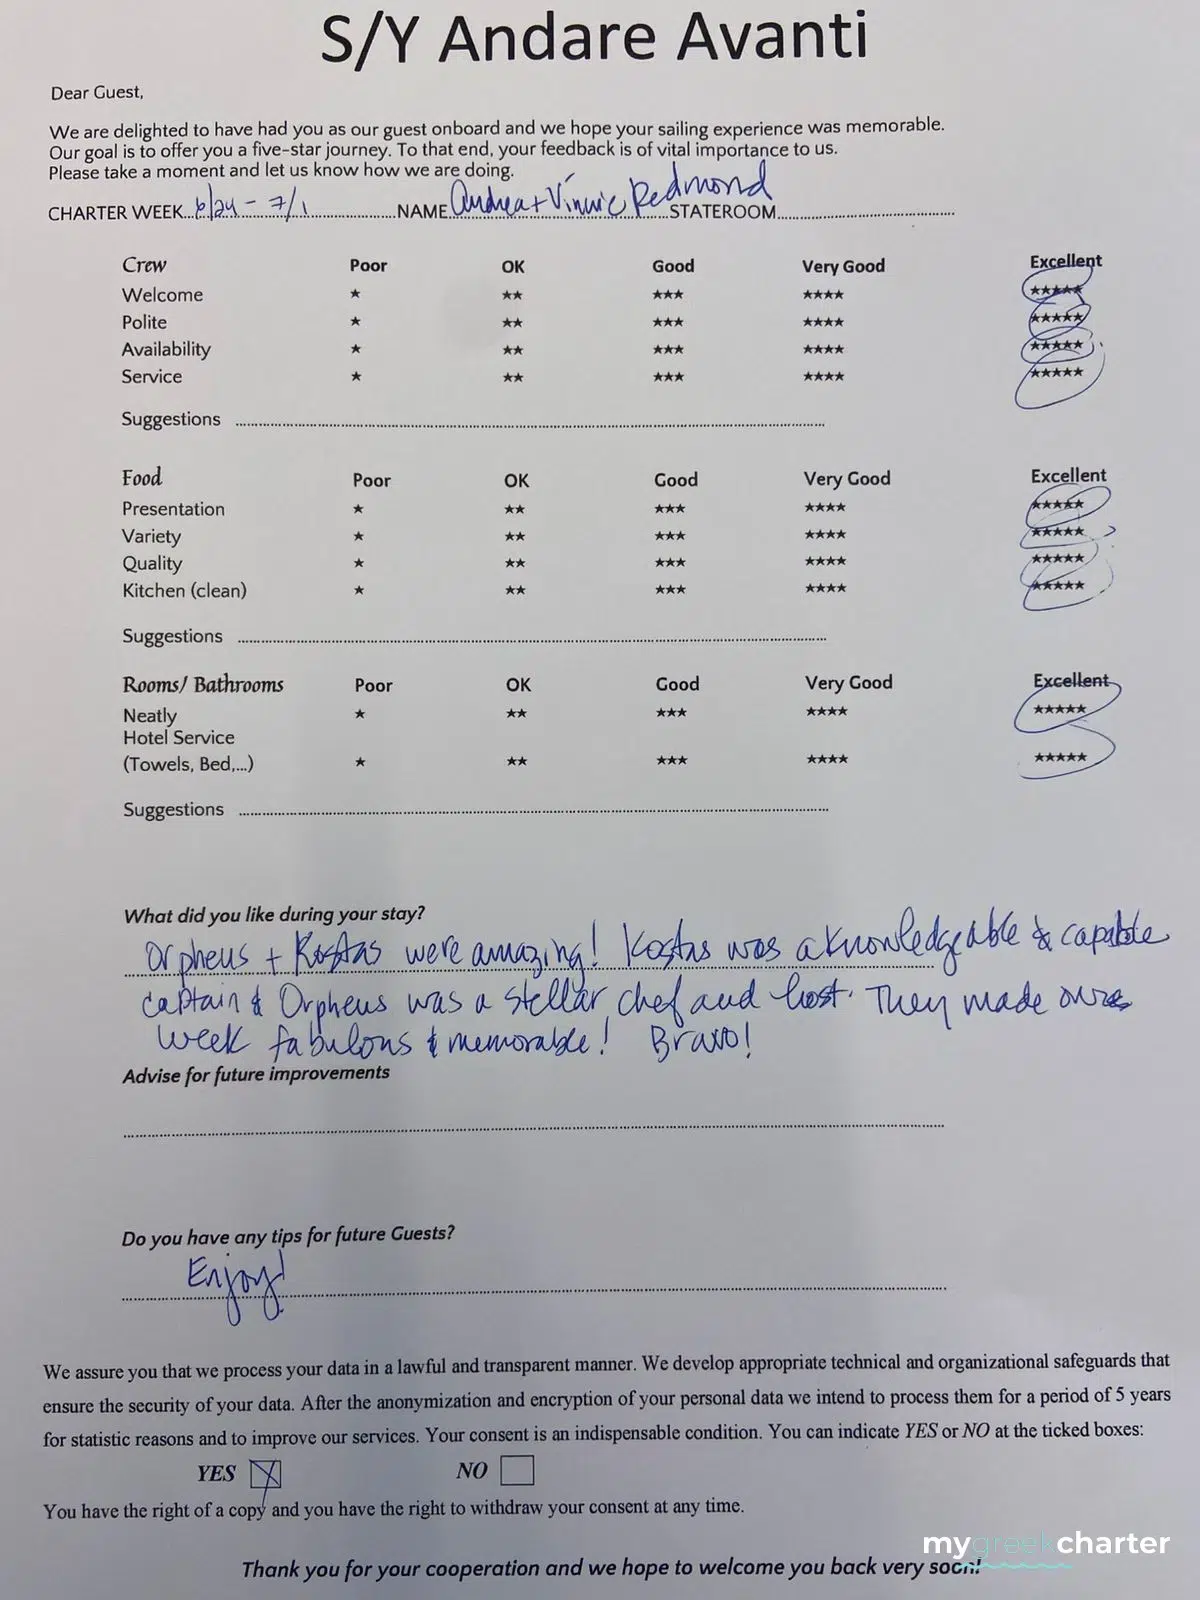 S/Y Andare Avanti
Dear Guest,
We are delighted to have had you as our guest onboard and we hope your sailing experience was memorable.
Our goal is to offer you a five-star journey. To that end, your feedback is of vital importance to us.
Please take a moment and let us know how we are doing.
CHARTER WEEK 6/24 - 7/1 NAME Andrea + Vinnie Redmond STATEROOM
Crew Poor OK Good Very Good Excellent
Welcome ★ ★★ ★★★ ★★★★ ★★★★★
Polite ★ ★★ ★★★ ★★★★ ★★★★★
Availability ★ ★★ ★★★ ★★★★ ★★★★★
Service ★ ★★ ★★★ ★★★★ ★★★★★
Suggestions
Food Poor OK Good Very Good Excellent
Presentation ★ ★★ ★★★ ★★★★ ★★★★★
Variety ★ ★★ ★★★ ★★★★ ★★★★★
Quality ★ ★★ ★★★ ★★★★ ★★★★★
Kitchen (clean) ★ ★★ ★★★ ★★★★ ★★★★★
Suggestions
Rooms/ Bathrooms Poor OK Good Very Good Excellent
Neatly ★ ★★ ★★★ ★★★★ ★★★★★
Hotel Service
(Towels, Bed,...) ★ ★★ ★★★ ★★★★ ★★★★★
Suggestions
What did you like during your stay?
Orpheus + Kostas were amazing! Kostas was a knowledgeable & capable
captain & Orpheus was a stellar chef and host. They made our
week fabulous & memorable! Bravo!
Advise for future improvements
Do you have any tips for future Guests?
Enjoy!
We assure you that we process your data in a lawful and transparent manner. We develop appropriate technical and organizational safeguards that
ensure the security of your data. After the anonymization and encryption of your personal data we intend to process them for a period of 5 years
for statistic reasons and to improve our services. Your consent is an indispensable condition. You can indicate YES or NO at the ticked boxes:
YES NO
You have the right of a copy and you have the right to withdraw your consent at any time.
mygreekcharter
Thank you for your cooperation and we hope to welcome you back very soon!